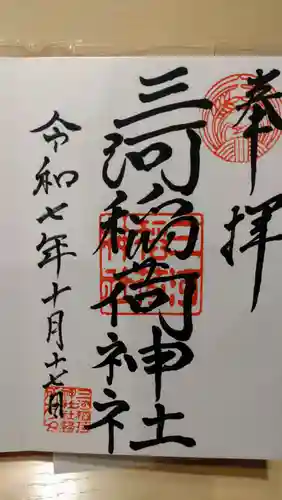 奉拝
三河稲荷神社
令和七年十月十七日